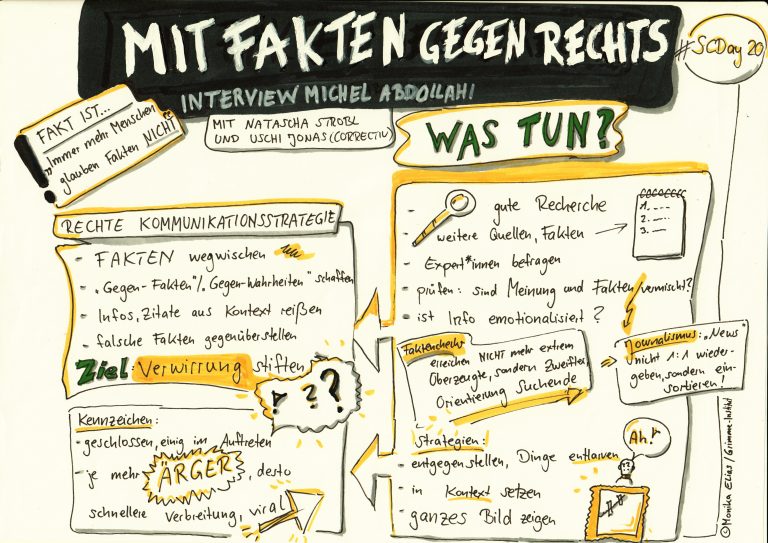 MIT FAKTEN GEGEN RECHTS
#SCDay 20
INTERVIEW MICHEL ABDOLLAHI
MIT NATASCHA STROBL
UND USCHI JONAS (CORRECTIV)
FAKT IST...
Immer mehr Menschen
glauben Fakten NICHT
!
WAS TUN?
RECHTE KOMMUNIKATIONSSTRATEGIE
- FAKTEN wegwischen
- "Gegen-Fakten"/"Gegen-Wahrheiten" schaffen
- Infos, Zitate aus Kontext reißen
- falsche Fakten gegenüberstellen
Ziel: Verwirrung stiften
! ? ?
Kennzeichen:
- geschlossen, einig im Auftreten
- je mehr ÄRGER, desto
schnellere Verbreitung, viral
- gute Recherche
- weitere Quellen, Fakten
1. ---
2. ---
3. ---
- Expert*innen befragen
- prüfen: sind Meinung und Fakten vermischt?
- ist Info emotionalisiert?
Faktenchecks
erreichen NICHT mehr extrem
Überzeugte, sondern Zweifler,
Orientierung Suchende
Journalismus: "News"
nicht 1:1 wieder-
geben, sondern ein-
sortieren!
Strategien:
- entgegenstellen, Dinge entlarven
- in Kontext setzen
- ganzes Bild zeigen
Ah!
©Monika Elias/Grimme-Institut